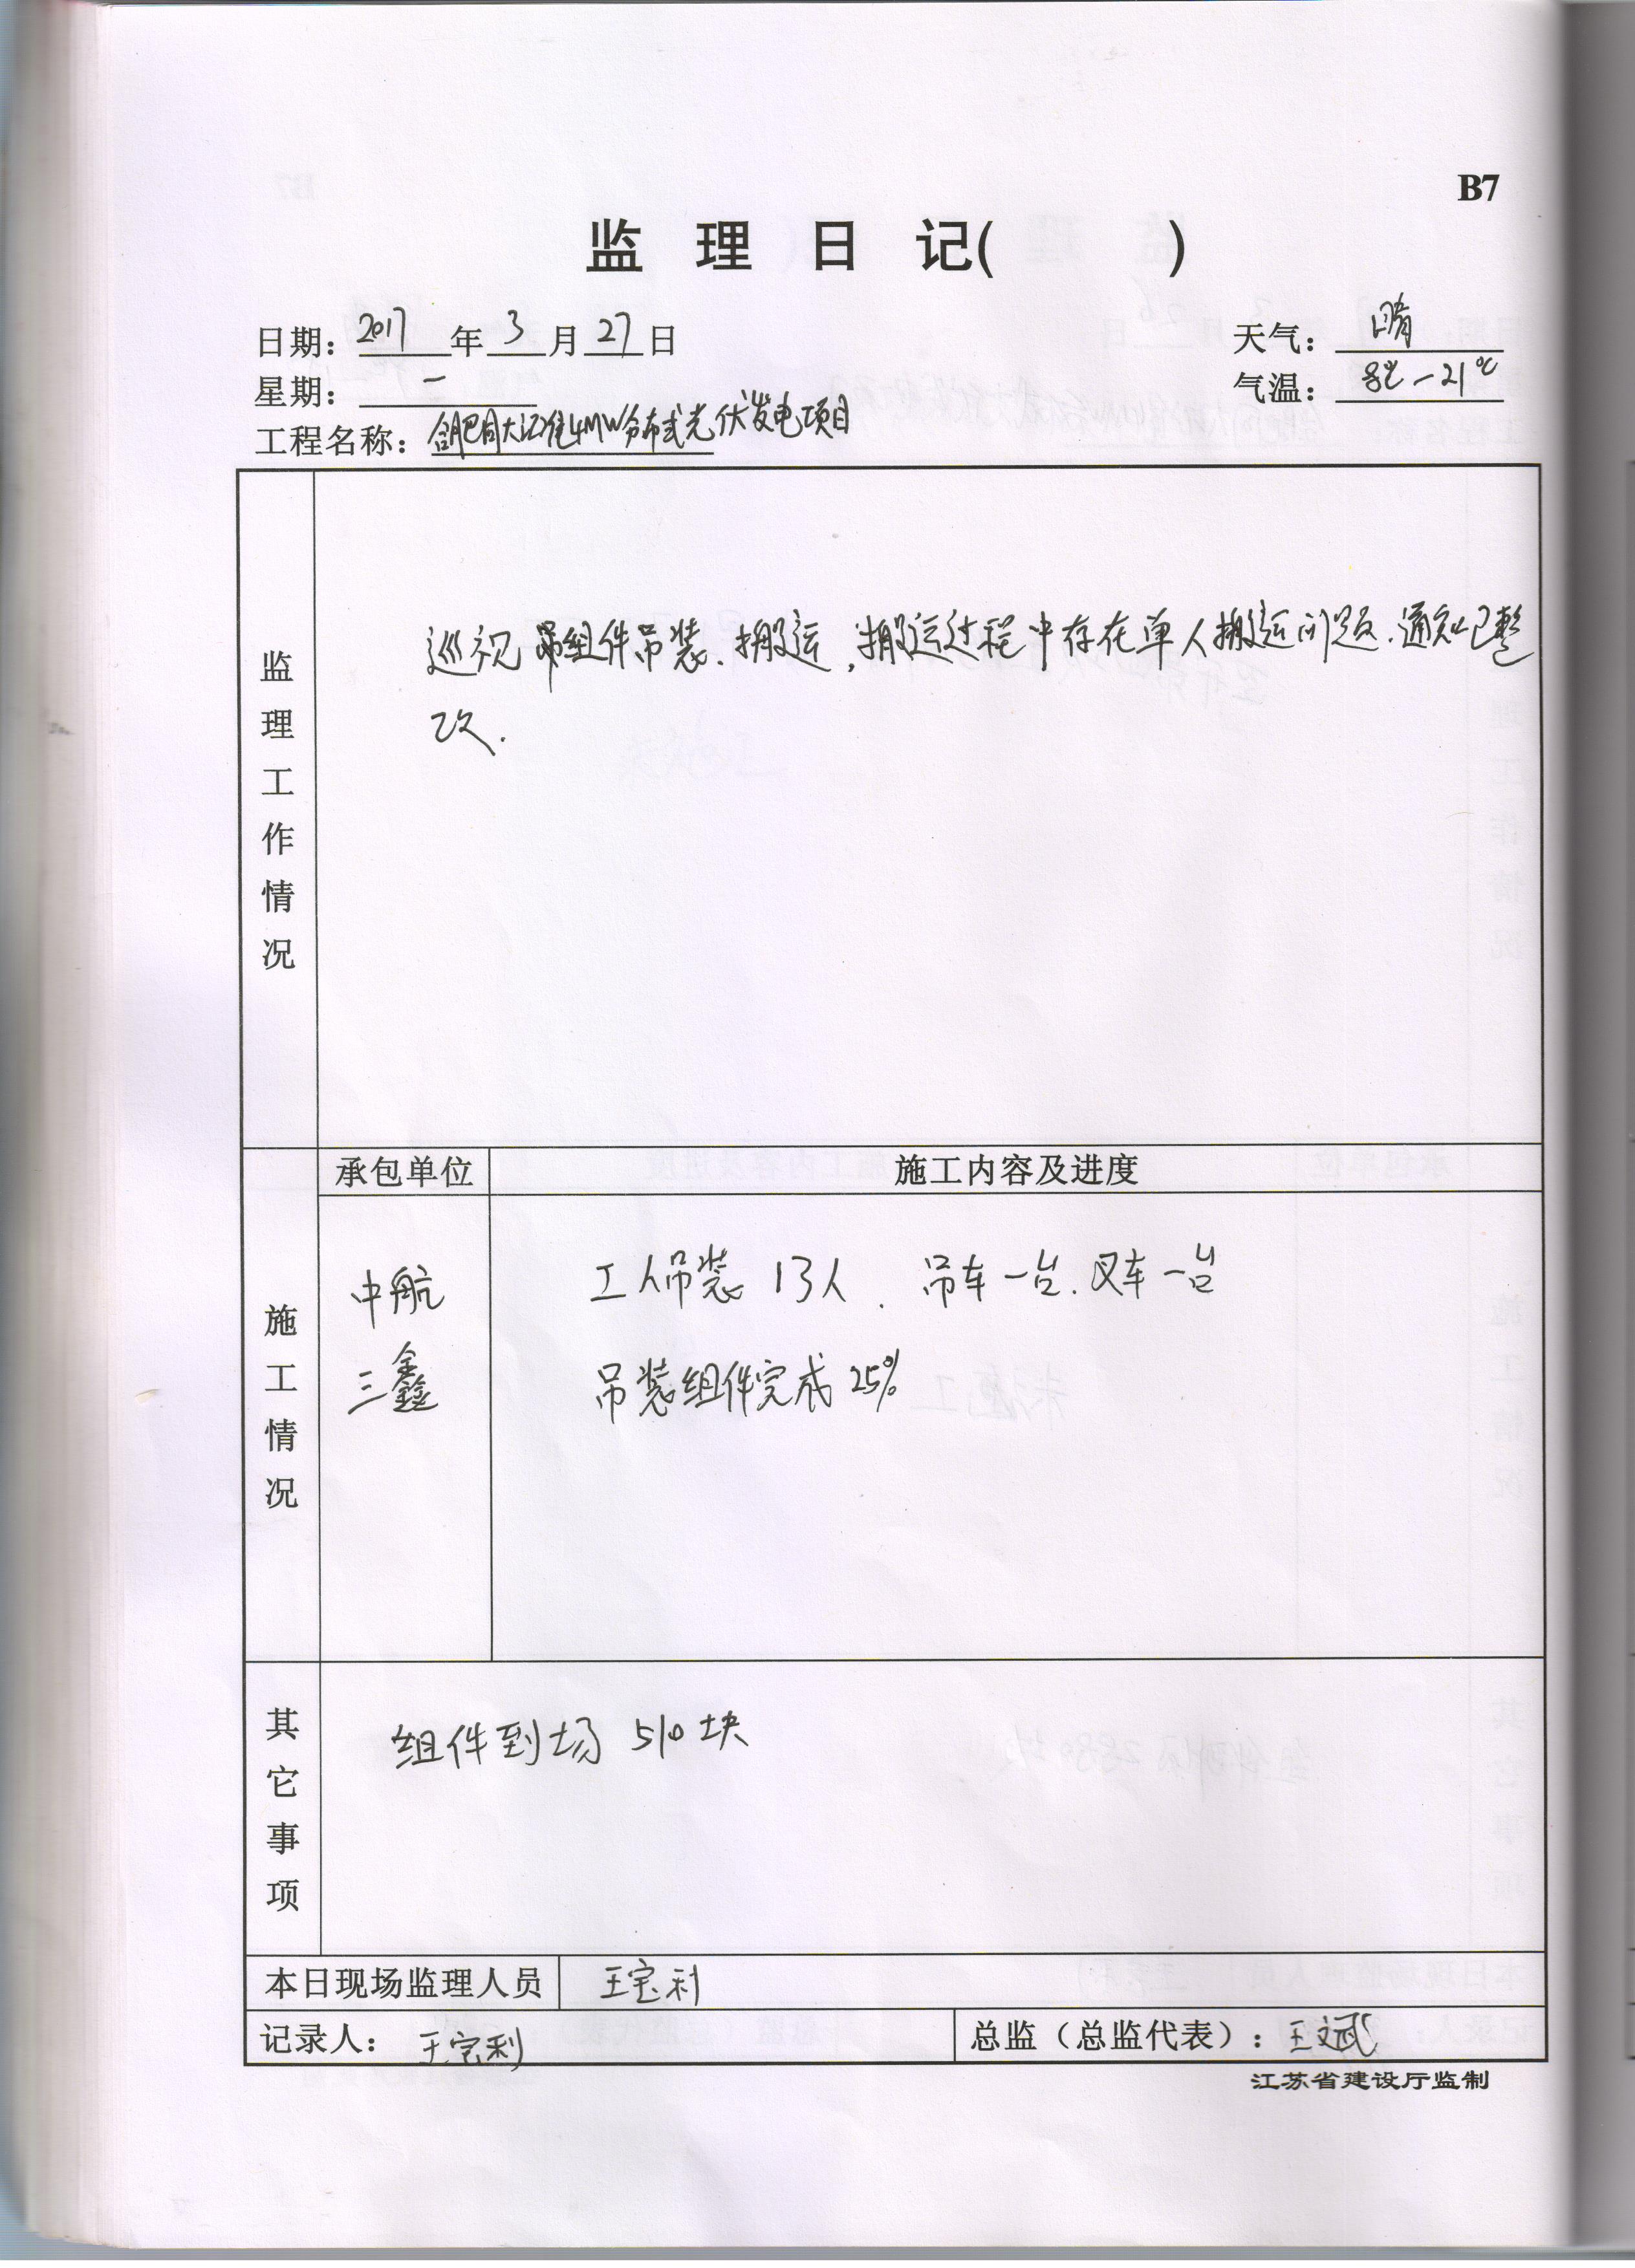 B7
监 理 日 记( )
日期：2017年3月27日 天气：晴
星期：一 气温：8℃-21℃
工程名称：合肥同大江淮4MW分布式光伏发电项目
监理工作情况
巡视 组件吊装、搬运，搬运过程中存在单人搬运问题，通知已整
改.
承包单位 施工内容及进度
施工情况
中航
三鑫
工人吊装 13人. 吊车一台.叉车一台
吊装组件完成25%
其它事项
组件到场 510块
本日现场监理人员 王宝利
记录人：王宝利 总监（总监代表）：王斌
江苏省建设厅监制